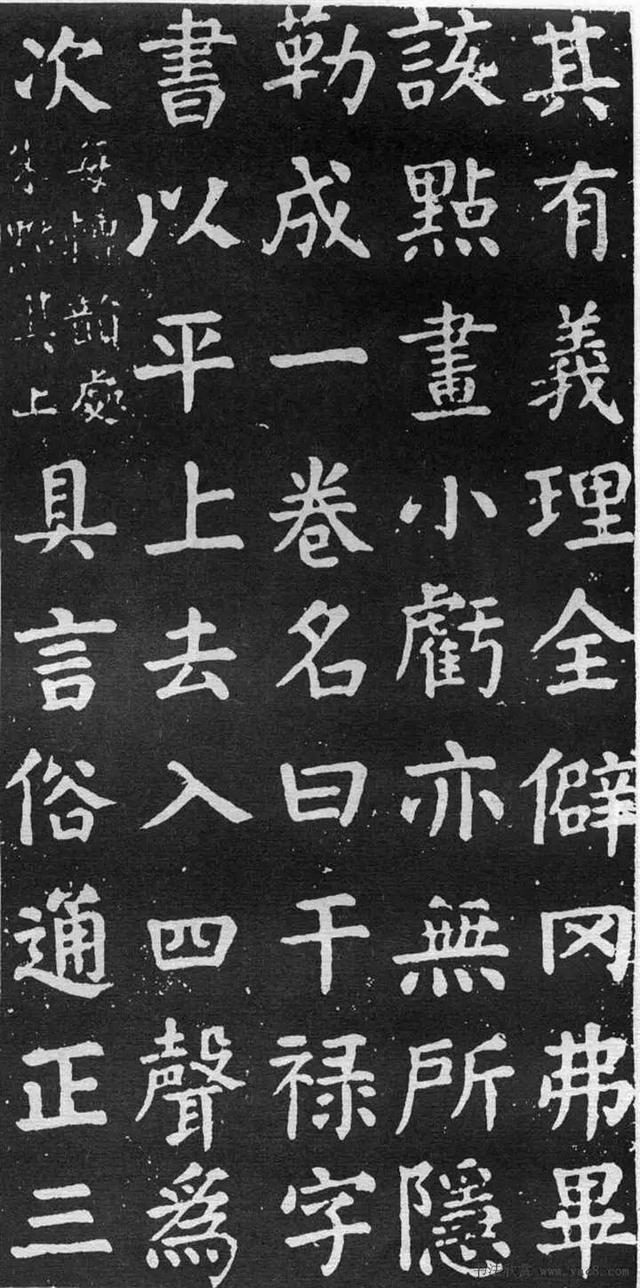 其有義理全僻罔弗畢
該點畫小虧亦無所隱
勒成一卷名曰干禄字
書以平上去入四聲為
次每轉韻處朱點其上具言俗通正三